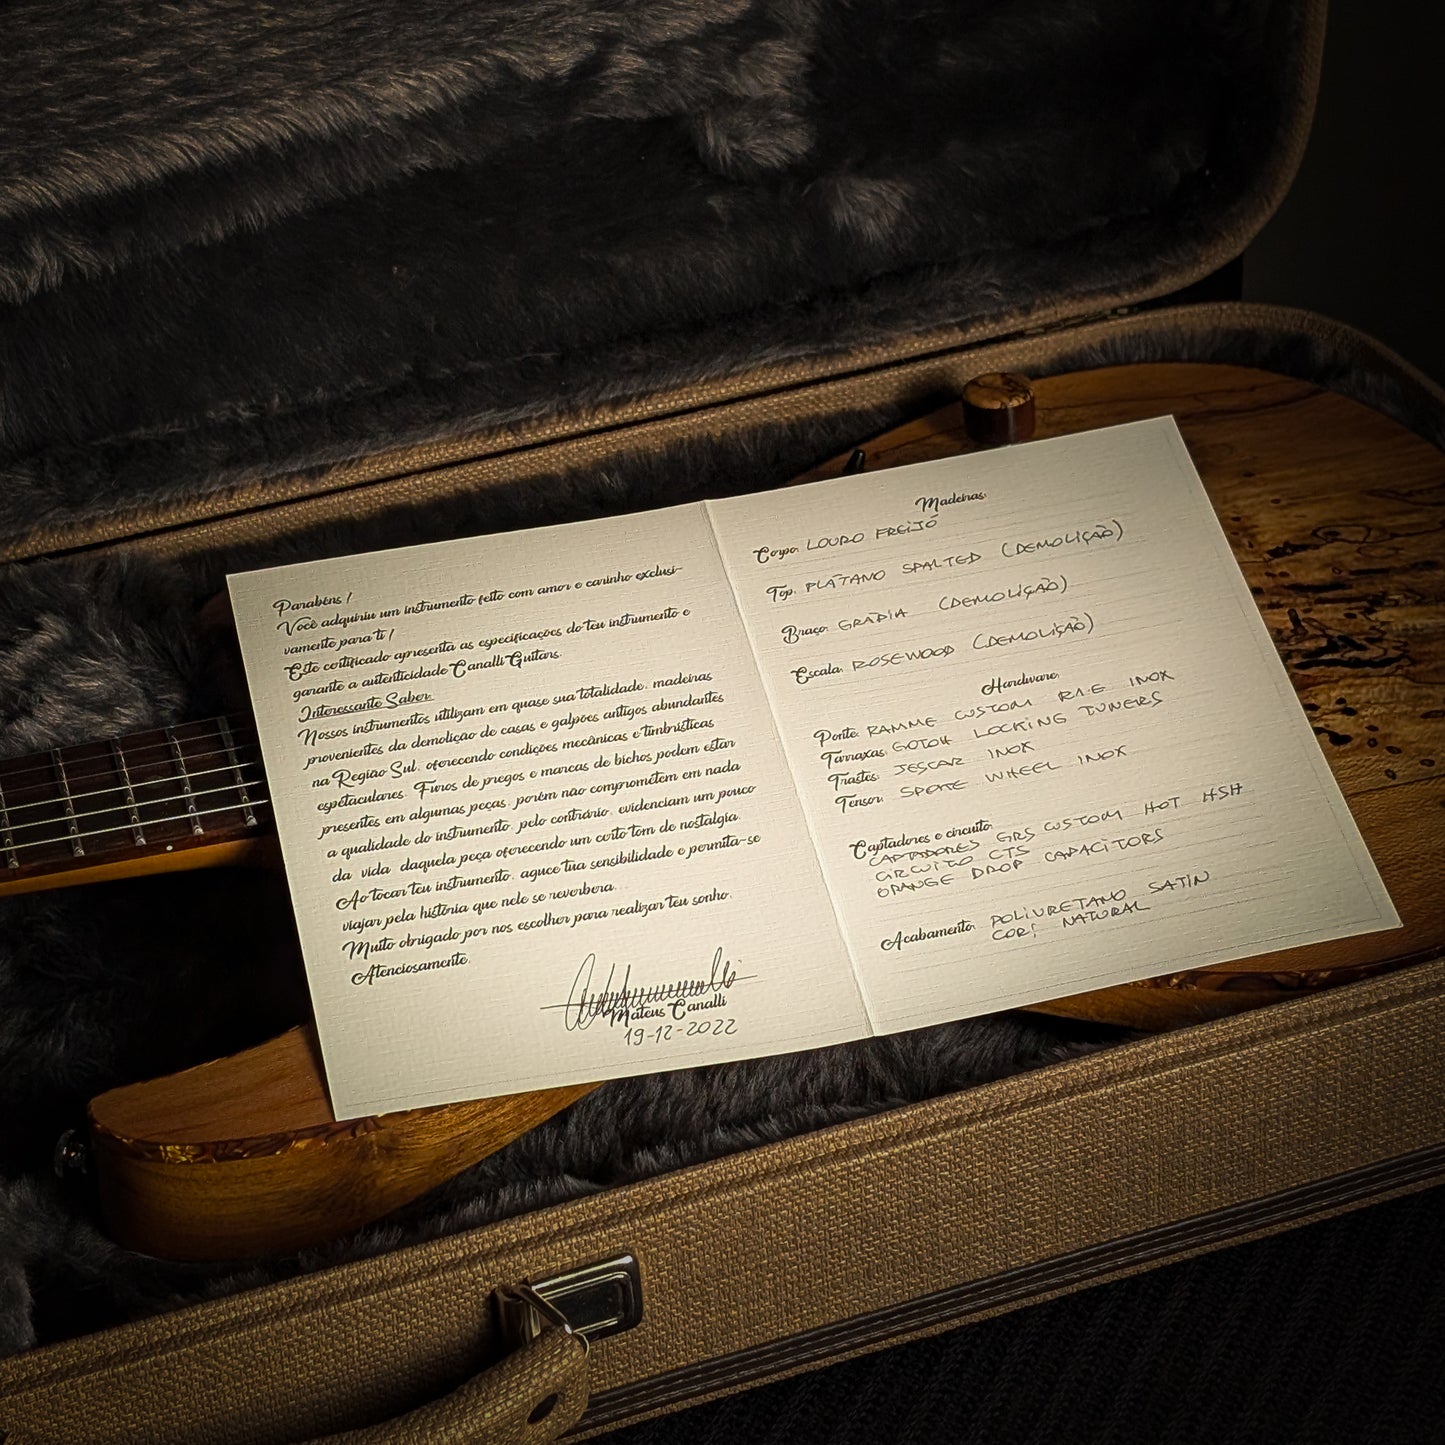 Parabéns !
Você adquiriu um instrumento feito com amor e carinho exclusi-
vamente para ti !
Este certificado apresenta as especificações do teu instrumento e
garante a autenticidade Canalli Guitars.
Interessante Saber:
Nossos instrumentos utilizam em quase sua totalidade, madeiras
provenientes da demolição de casas e galpões antigos abundantes
na Região Sul, oferecendo condições mecânicas e timbrísticas
espetaculares. Furos de pregos e marcas de bichos podem estar
presentes em algumas peças, porém não comprometem em nada
a qualidade do instrumento, pelo contrário, evidenciam um pouco
da vida daquela peça oferecendo um certo tom de nostalgia.
Ao tocar teu instrumento, aguce tua sensibilidade e permita-se
viajar pela história que nele se reverbera...
Muito obrigado por nos escolher para realizar teu sonho.
Atenciosamente,
Mateus Canalli
19-12-2022
Madeiras:
Corpo: LOURO FREIJÓ
Top: PLÁTANO SPALTED (DEMOLIÇÃO)
Braço: GRÁPIA (DEMOLIÇÃO)
Escala: ROSEWOOD (DEMOLIÇÃO)
Hardware:
Ponte: RAMME CUSTOM INOX
Tarraxas: GOTOH LOCKING TUNERS
Trastes: JESCAR INOX
Tensor: SPOKE WHEEL INOX
Captadores e circuito:
CAPTADORES GRS CUSTOM HOT HSH
CIRCUITO CTS
ORANGE DROP CAPACITORS
Acabamento: POLIURETANO SATIN
COR: NATURAL